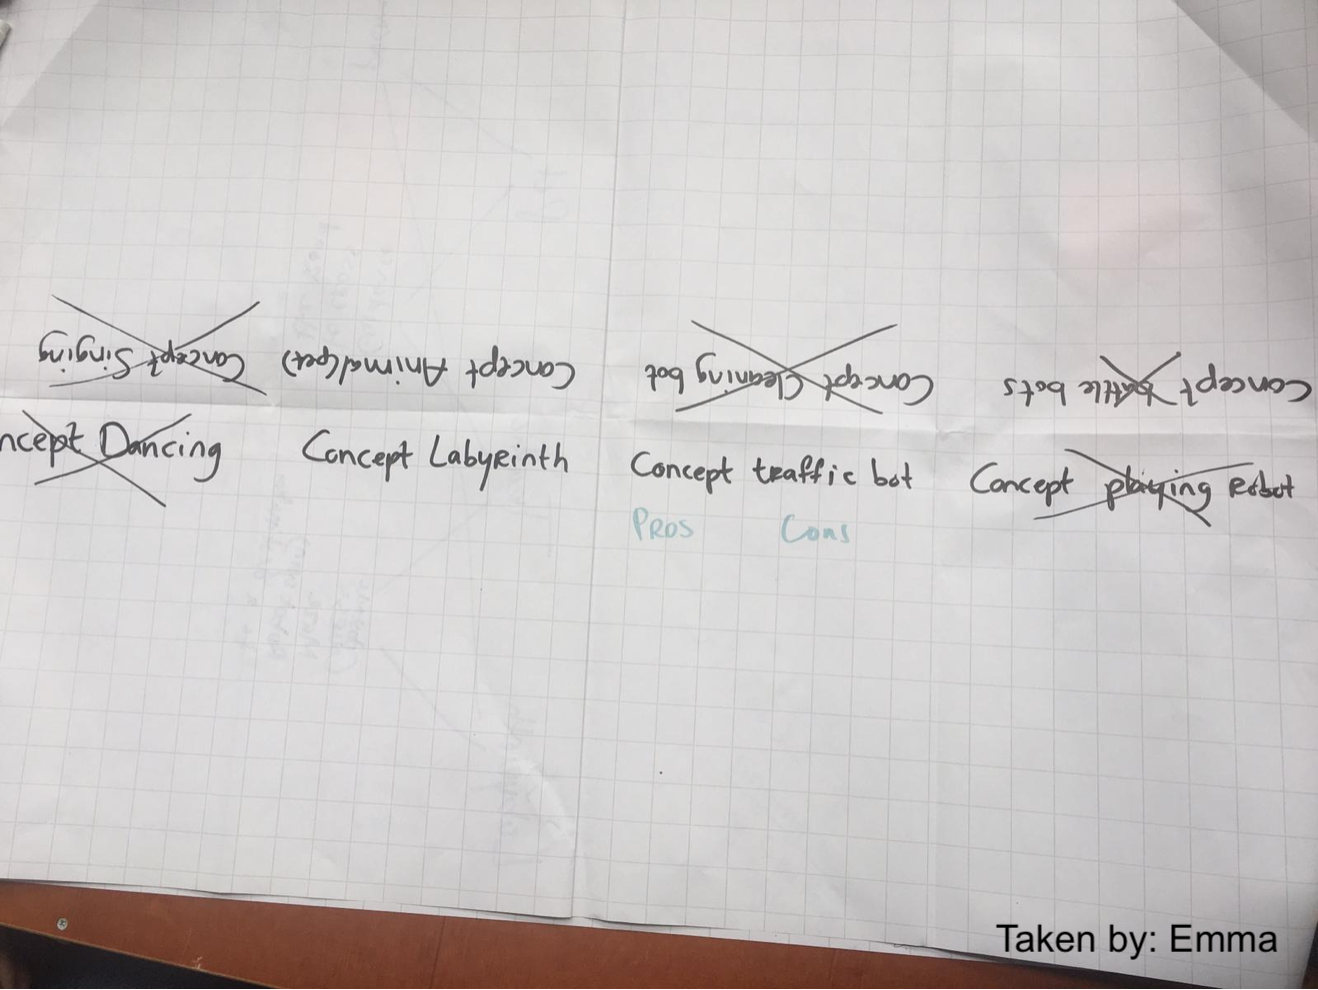 Concept Singing
Concept Animal(pet)
Concept Cleaning bot
Concept battle bots
ncept Dancing
Concept Labyrinth
Concept traffic bot
Concept playing Robot
PROS
Cons
Taken by: Emma